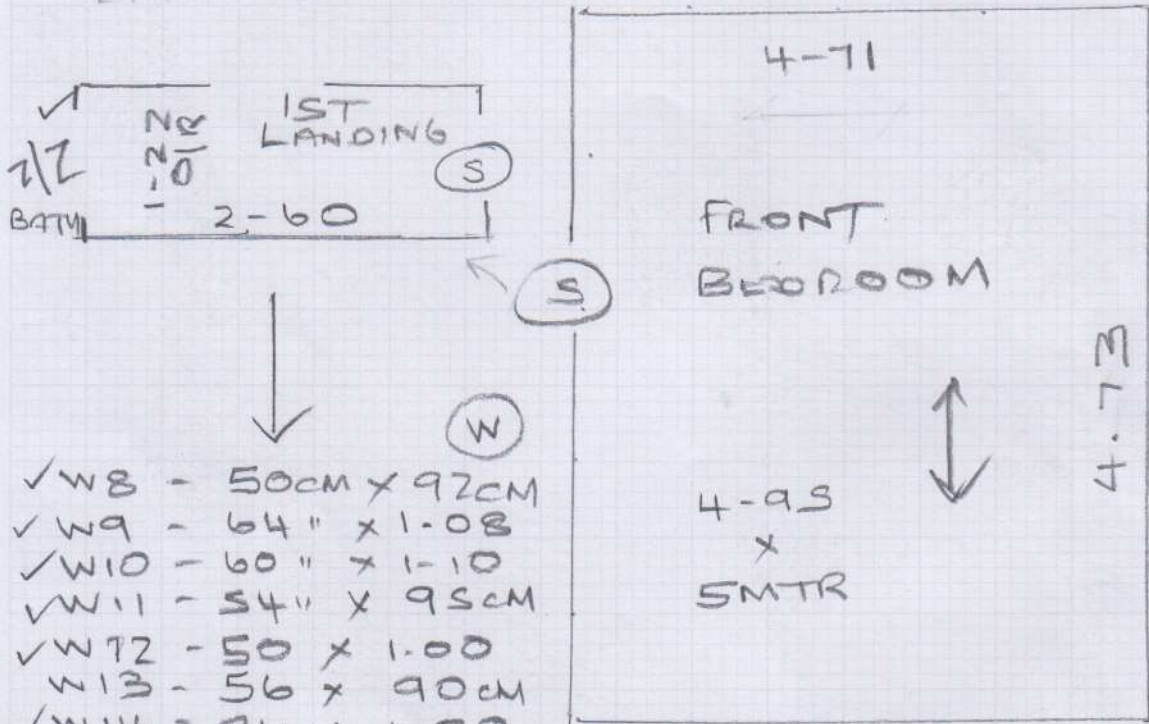 1ST
LANDING
S
BATH
2-60
S
W
✓ W8 - 50CM × 92CM
✓ W9 - 64 " × 1-08
✓ W10 - 60 " × 1-10
✓ W11 - 54 " × 95CM
✓ W12 - 50 × 1.00
W13 - 56 × 90CM
4-71
FRONT
BEDROOM
4-73
4-95
×
5MTR